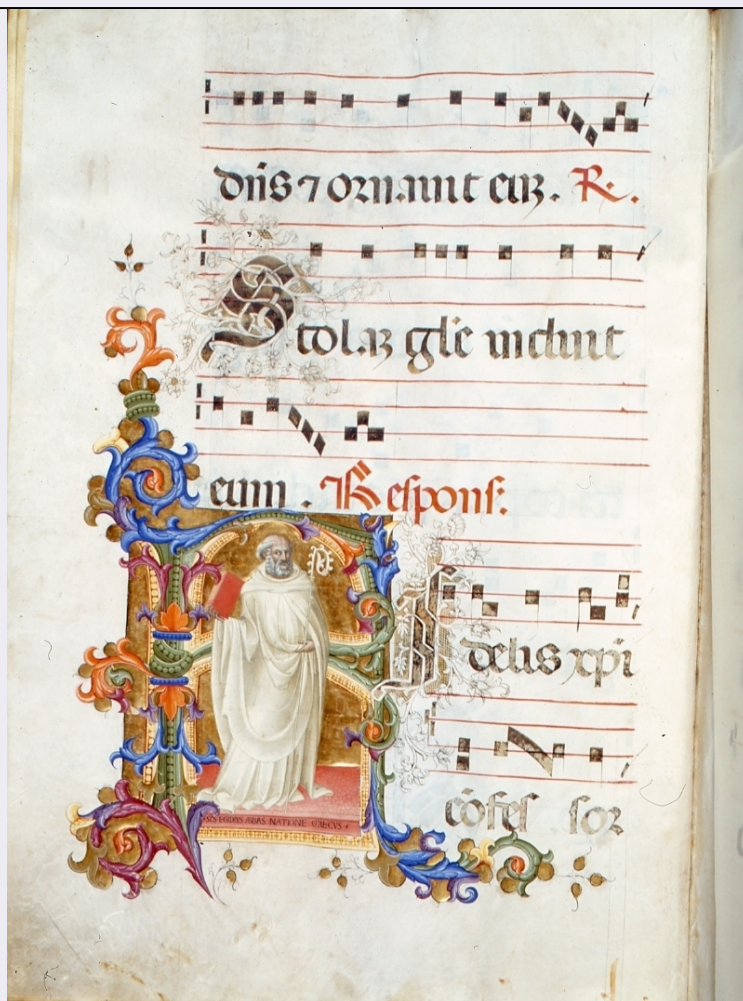 dn̄s ⁊ ornauit euꝫ. R.
Stolaꝫ gl̄e induit
eum. Respons:
Fidelis xp̄i
cōfes sor
ABAS NATIONE GRECVS